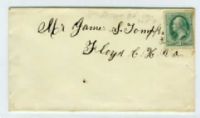 Mr James S. Tompk
Floyd C. H. Va